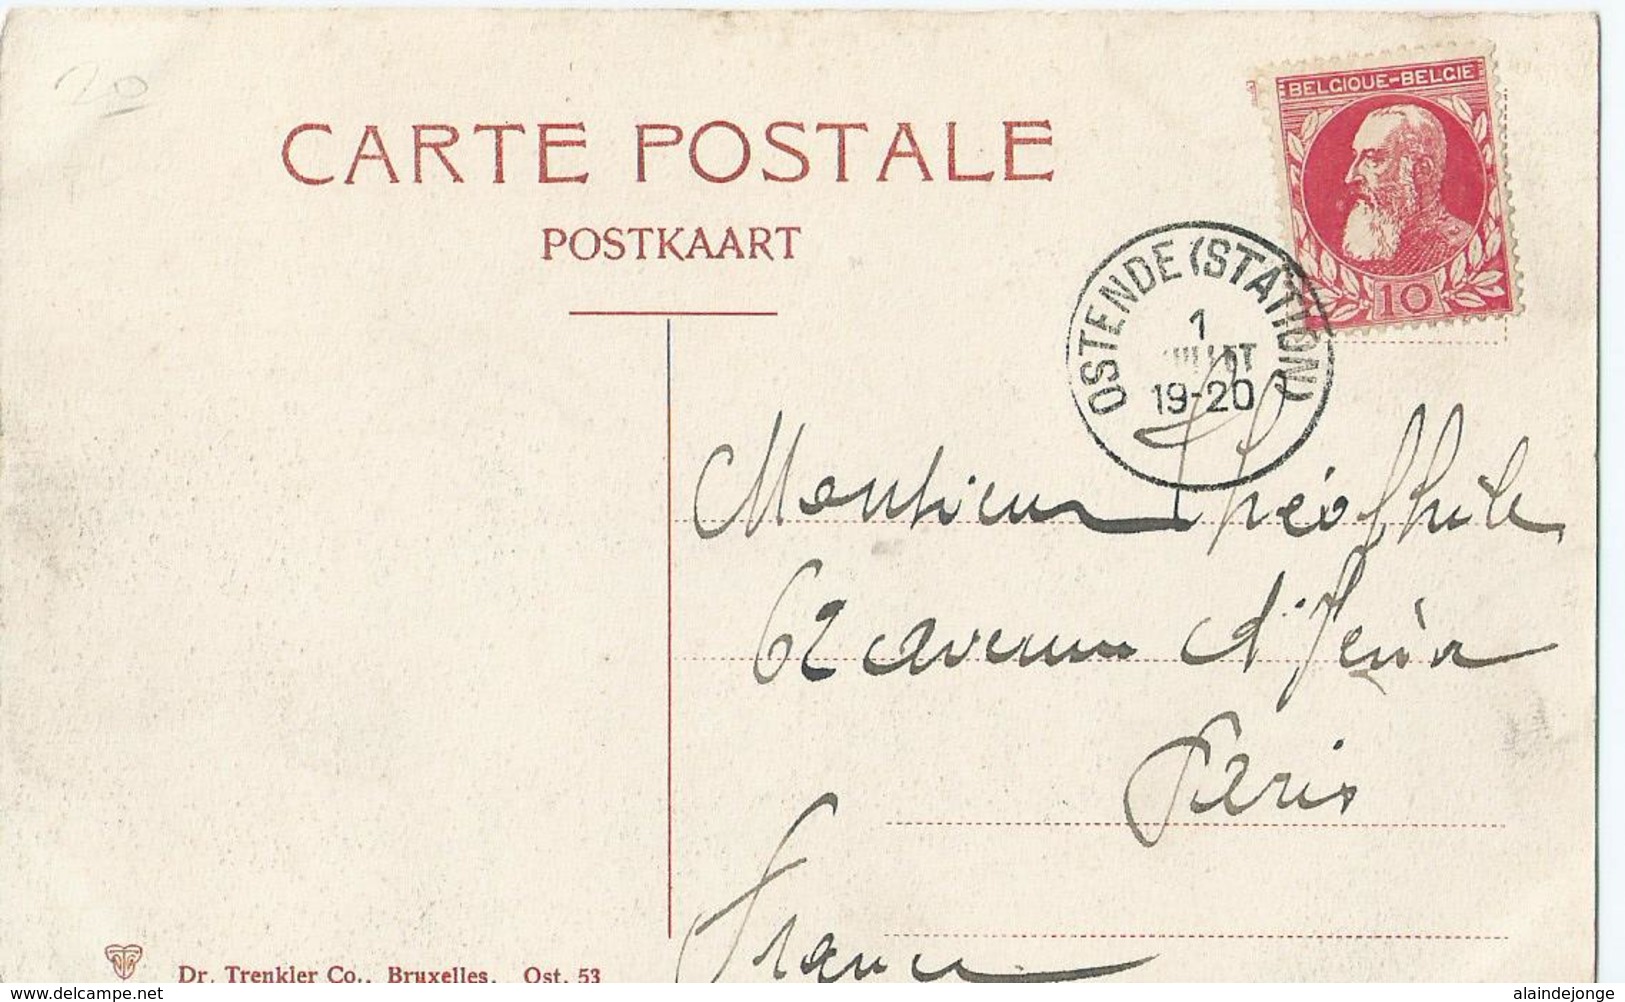 20
CARTE POSTALE
POSTKAART
BELGIQUE-BELGIE
10
OSTENDE (STATION)
1
JUILLET
19-20
Monsieur Théophile
62 avenue d'Iéna
Paris
France
Dr. Trenkler Co., Bruxelles. Ost. 53
www.delcampe.net
alaindejonge